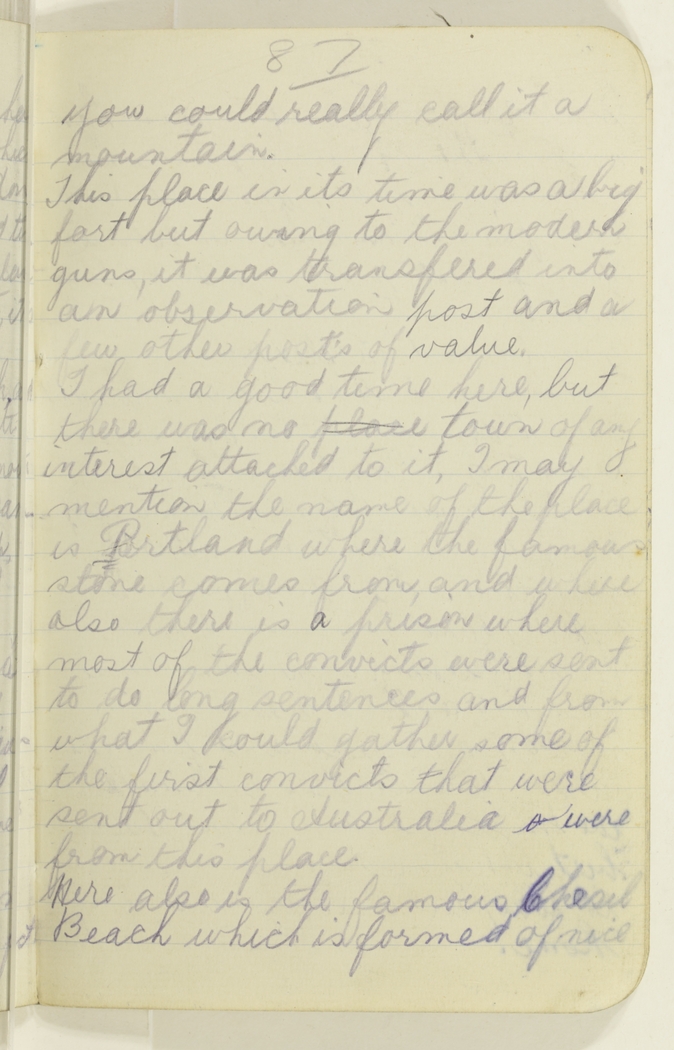 87
you could really call it a
mountain.
This place in its time was a big
fort but owing to the modern
guns, it was transfered into
an observation post and a
few other posts of value.
I had a good time here, but
there was no place town of any
interest attached to it, I may
mention the name of the place
is Portland where the famous
stone comes from, and where
also there is a prison where
most of the convicts were sent
to do long sentences and from
what I could gather some of
the first convicts that were
sent out to Australia were
from this place.
Here also is the famous Chesil
Beach which is formed of nice